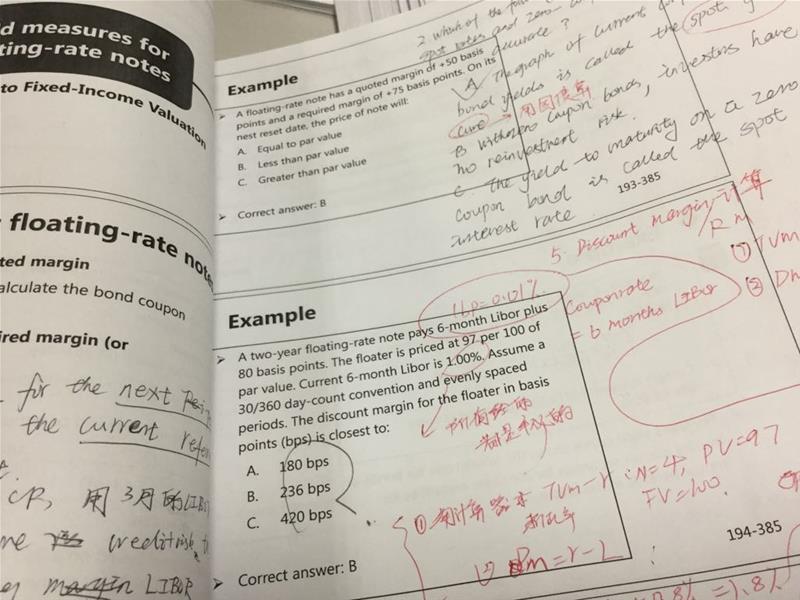 d measures for
ting-rate notes
to Fixed-Income Valuation
floating-rate note
ted margin
alculate the bond coupon
ired margin (or
for the next
the current refe
CR, 用3月的LIBOR
credit risk
margin LIBOR
Example
A floating-rate note has a quoted margin of +50 basis
points and a required margin of +75 basis points. On its
nest reset date, the price of note will:
A. Equal to par value
B. Less than par value
C. Greater than par value
Correct answer: B
2. Which of the
spot rates and zero-
accurate?
A The graph of current
bond yields is called the spot
curve
B With zero coupon bonds, investors have
no reinvestment risk.
C. The yield to maturity on a zero
coupon bond is called the spot
interest rate
193-385
5. Discount margin 计算
Rm
① TVM
② Dm
1bp=0.01%
Couponrate
= 6 months LIBOR
Example
A two-year floating-rate note pays 6-month Libor plus
80 basis points. The floater is priced at 97 per 100 of
par value. Current 6-month Libor is 1.00%. Assume a
30/360 day-count convention and evenly spaced
periods. The discount margin for the floater in basis
points (bps) is closest to:
A. 180 bps
B. 236 bps
C. 420 bps
Correct answer: B
① 用计算器求 TVM-r : N=4, PV=97
FV=100
② Dm=r-L
194-385
=1.8%